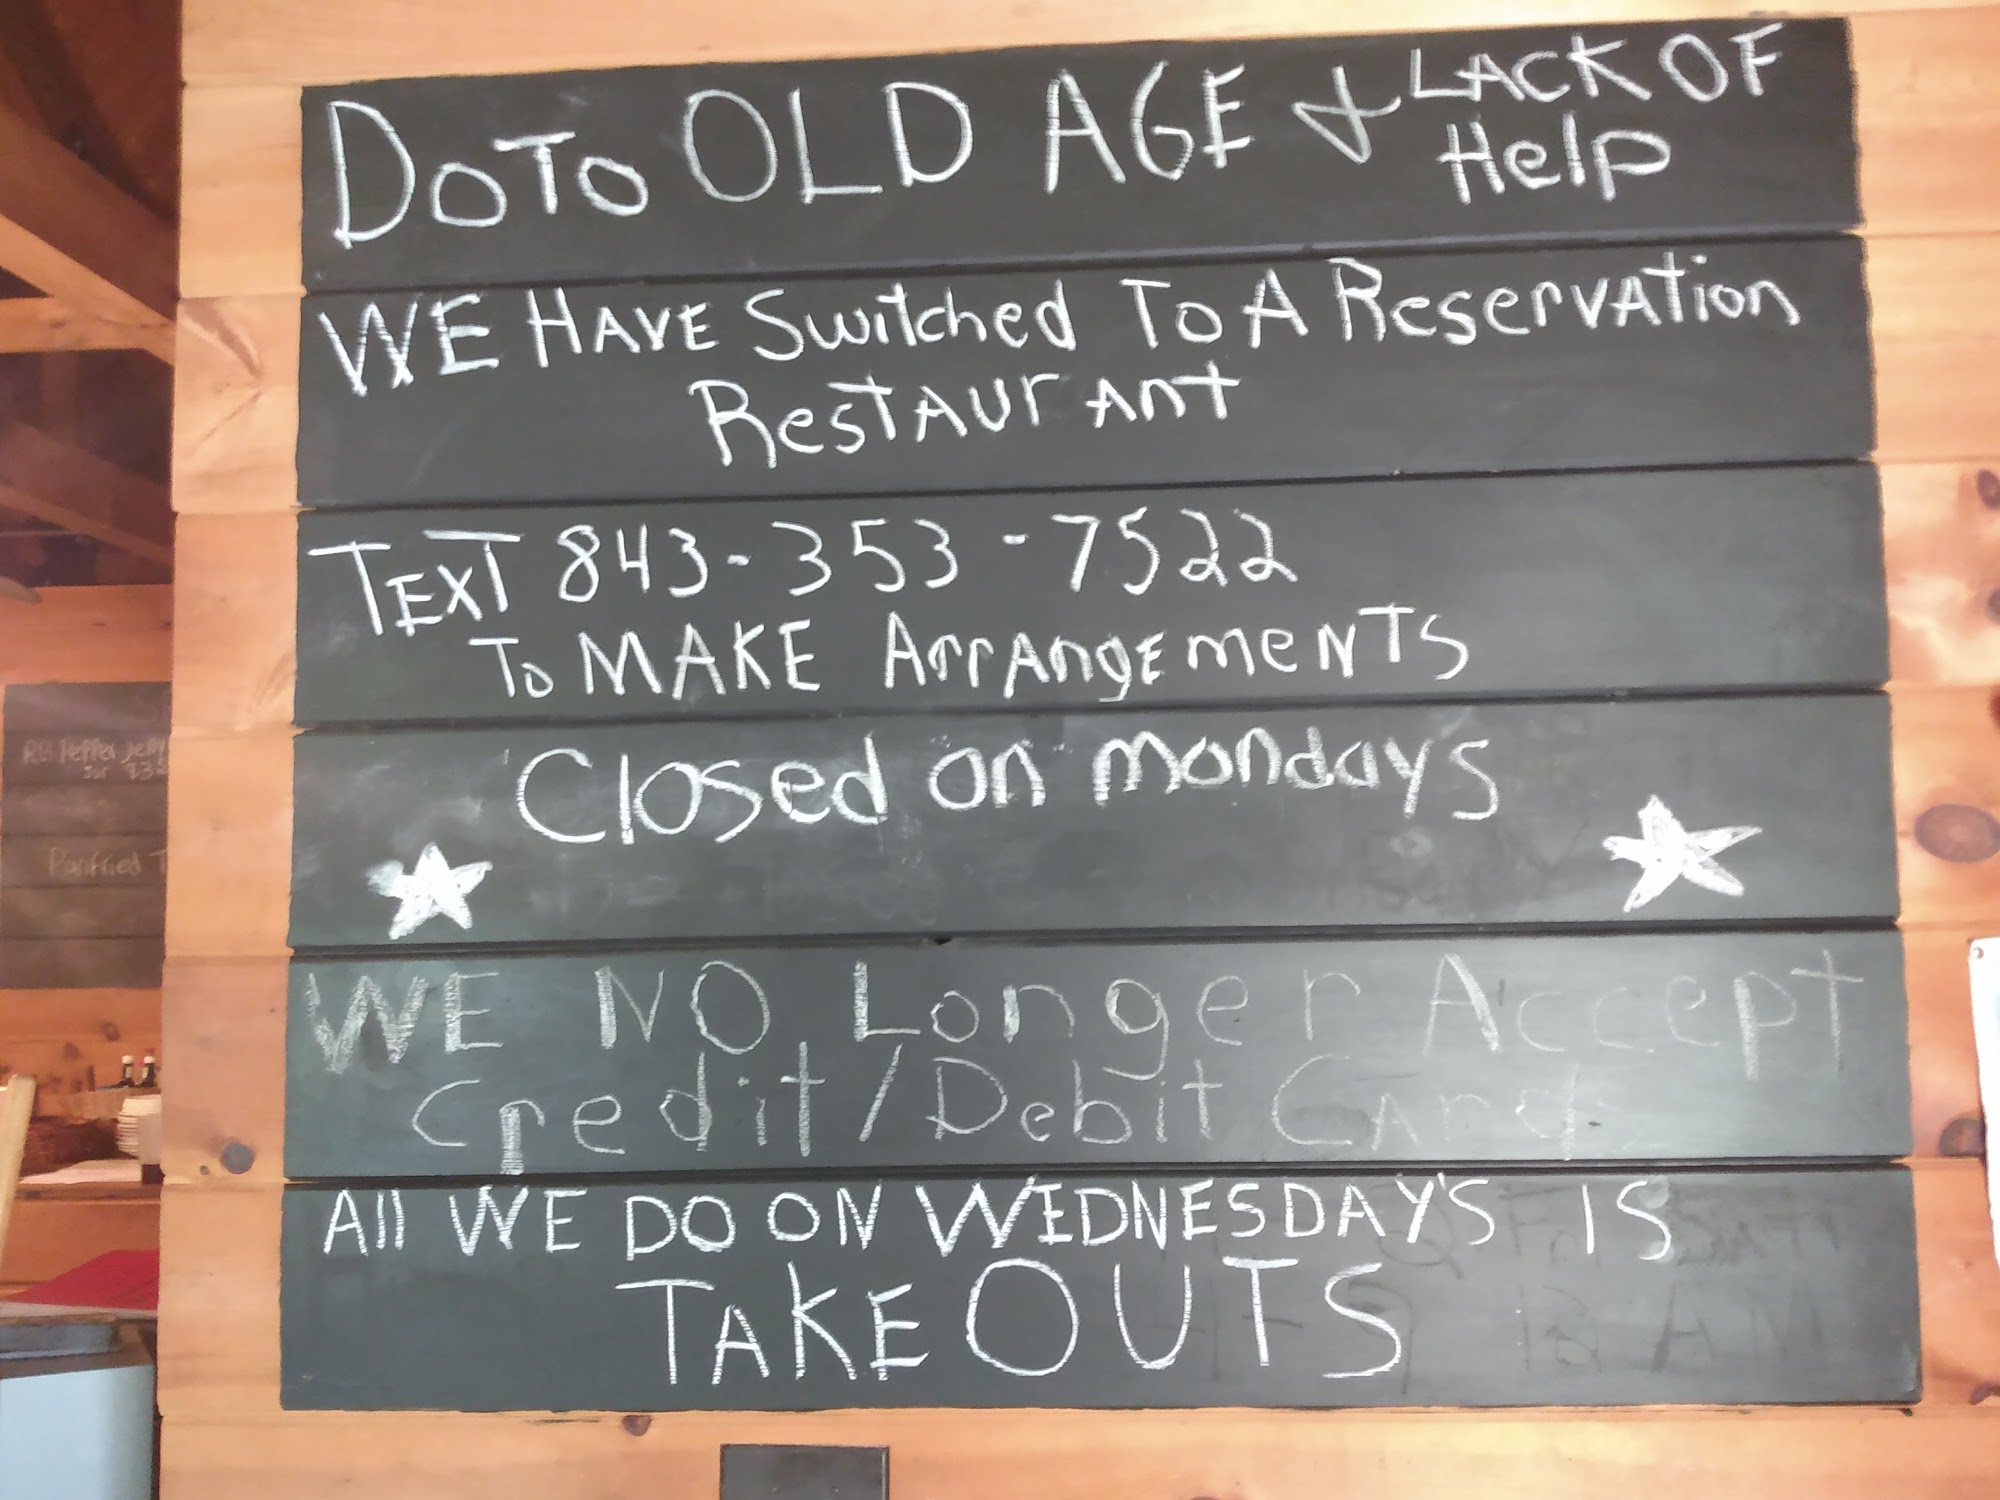 DoTo OLD AGE & LACK OF Help
WE HAVE Switched To A Reservation
Restaurant
TEXT 843-353-7522
To MAKE Arrangements
Closed on mondays
WE NO Longer Accept
Credit/Debit Cards
All WE DO ON WEDNESDAY'S IS
TAKE OUTS
Pepper Jelly
Panfried